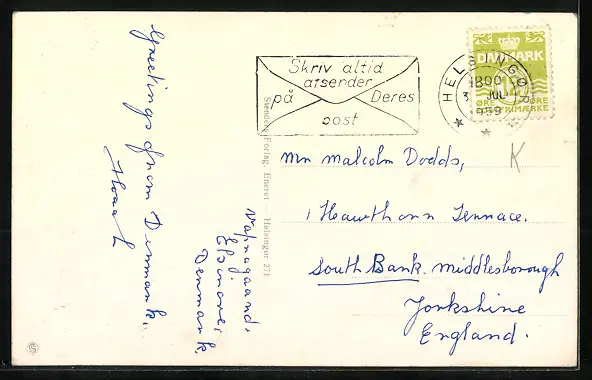 Greetings from Denmark.
Vapnagaard.
Elsinore,
Denmark
Stenders Forlag Eneret Helsingør 271
Skriv altid
afsender
på Deres
post
HELSINGØR
1800
JUL
DANMARK
12
ØRE ØRE
FRIMÆRKE
K
Mr Malcolm Dodds,
1 Hawthorn Terrace.
South Bank. Middlesborough
Yorkshire
England.